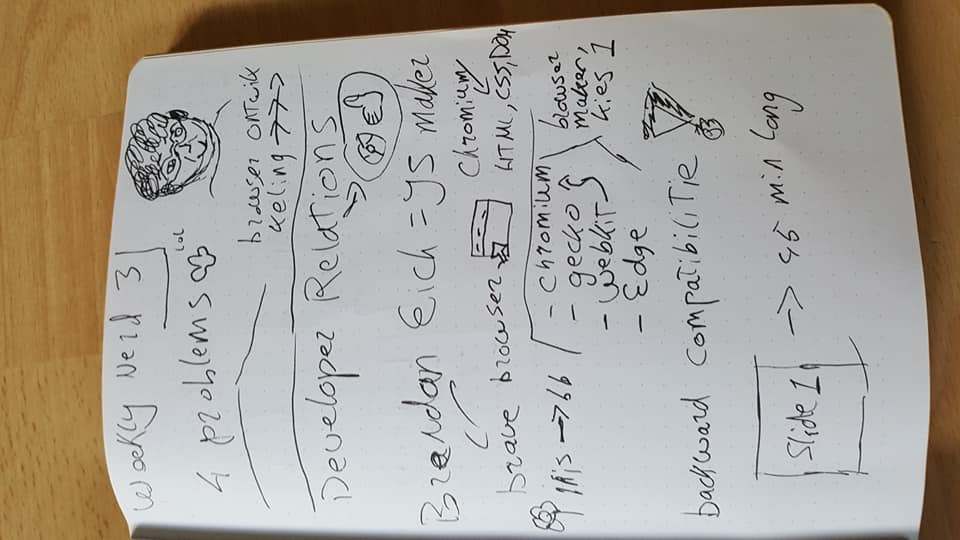 Weekly Nerd 3
4 problems
lol
browser ontwik
keling →→→
Developer Relations
Brendan Eich = JS maker
brave browser
chromium
HTML, CSS, DOM
→ bb
- chromium
- gecko
- webkit
- Edge
browser
maker,
kies 1
backward compatibilitie
Slide 1 → 45 min long